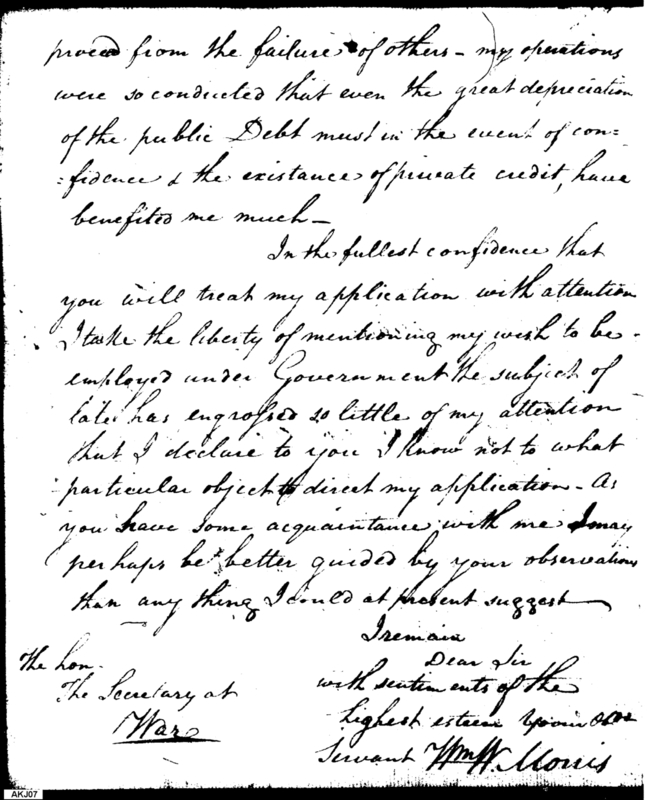 proceed from the failure of others - my operations
were so conducted that even the great depreciation
of the public Debt must in the event of con=
=fidence & the existance of private credit, have
benefited me much -
In the fullest confidence that
you will treat my application with attention
I take the liberty of mentioning my wish to be
employed under Government the subject of
late has engrossed so little of my attention
that I declare to you I know not to what
particular object to direct my application - As
you have some acquaintance with me I may
perhaps be better guided by your observations
than any thing I could at present suggest
I remain
Dear Sir
with sentiments of the
highest esteem your
Servant Wm W. Morris
The hon.
The Secretary at
War
AKJ07